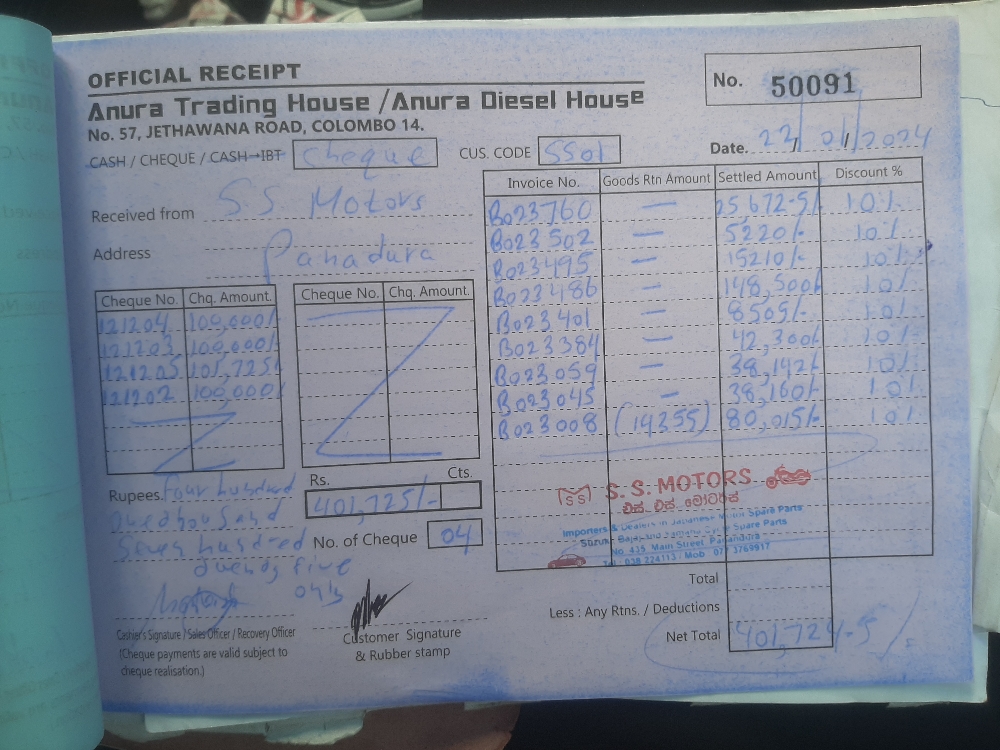 OFFICIAL RECEIPT
Anura Trading House / Anura Diesel House
No. 57, JETHAWANA ROAD, COLOMBO 14.
No. 50091
CASH / CHEQUE / CASH-IBT Cheque
CUS. CODE SS01
Date. 23/01/2024
Received from S.S. Motors
Address Panadura
Invoice No. Goods Rtn Amount Settled Amount Discount %
B023760 — 25,672-5/ 10%
B023502 — 5220/- 10%
B023495 — 15210/- 10%
B023486 — 148,500/- 10%
B023401 — 8505/- 10%
B023384 — 42,300/- 10%
B023059 — 38,142/- 10%
B023045 — 38,160/- 10%
B023008 (14355) 80,015/- 10%
Cheque No. Chq. Amount. Cheque No. Chq. Amount.
121204 100,000/-
121203 100,000/-
121205 101,725/-
121202 100,000/-
Rupees. four hundred
one thousand
Seven hundred
twenty five
only
Rs. Cts.
401,725/-
No. of Cheque 04
S.S. MOTORS
එස්. එස්. මෝටර්ස්
Importers & Dealers in Japanese Spare Parts
Spare Parts
No. 435, Main Street, Panadura
Tel : 038 224113 / Mob : 077 3769917
Total
Less : Any Rtns. / Deductions
Net Total 401,724-5/
Cashier's Signature / Sales Officer / Recovery Officer
(Cheque payments are valid subject to
cheque realisation.)
Customer Signature
& Rubber stamp